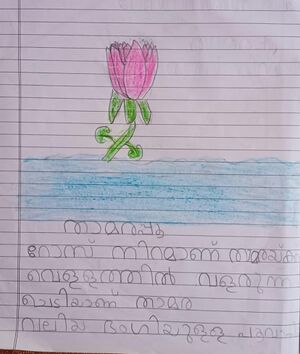 താമരപ്പൂ
റോസ് നിറമാണ് താമരയ്ക്ക്
വെള്ളത്തിൽ വളരുന്ന
ചെടിയാണ് താമര
വലിയ ഭംഗിയുള്ള പൂവാ